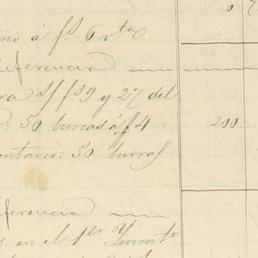 á fs 6 vto
diferencia
ra s/ fs 9 y 27 del
50 burras á $4 200.
entario: 50 burras
diferencia
s en el 1er Invento